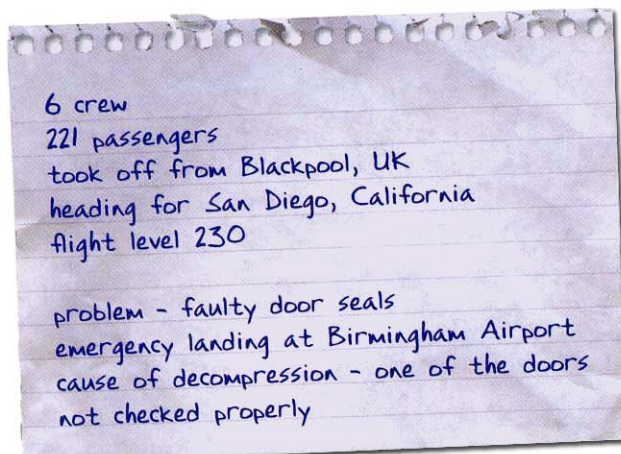 6 crew
221 passengers
took off from Blackpool, UK
heading for San Diego, California
flight level 230
problem - faulty door seals
emergency landing at Birmingham Airport
cause of decompression - one of the doors
not checked properly